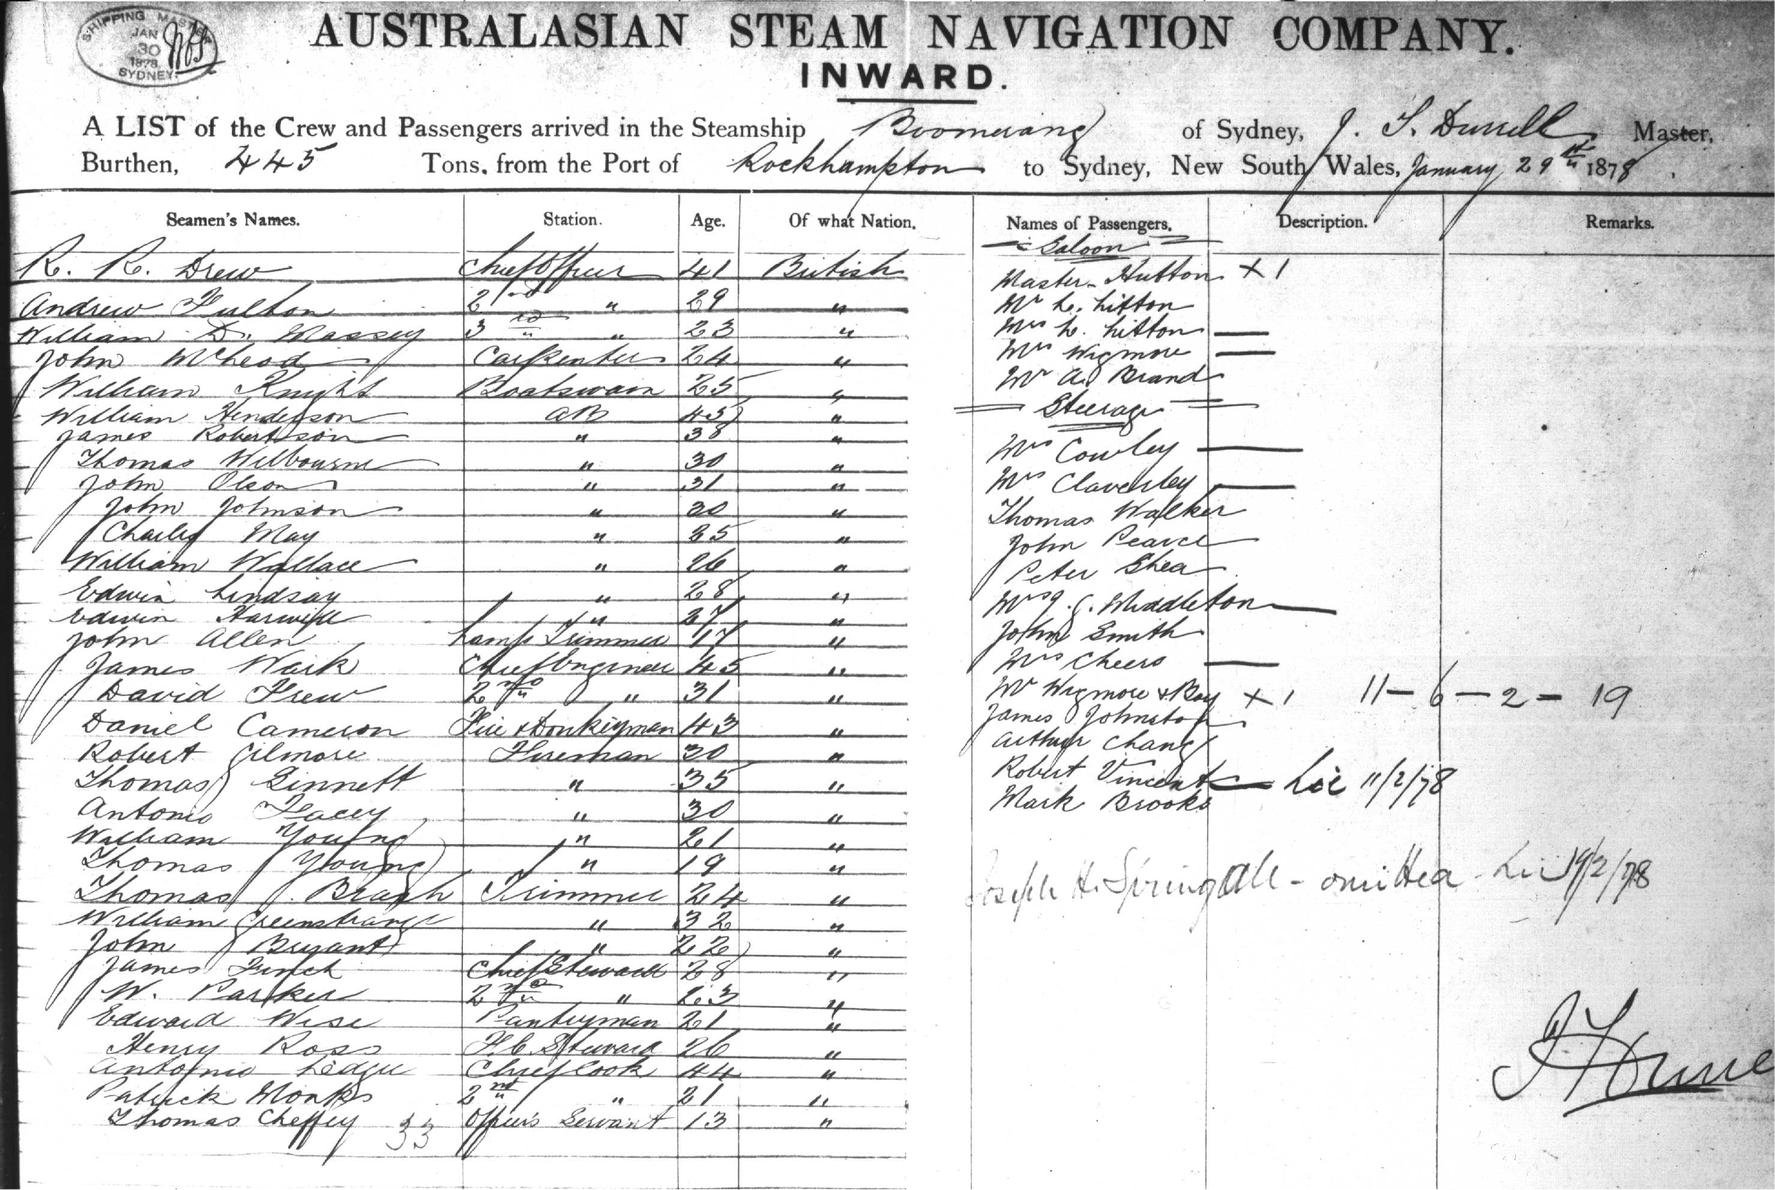 SHIPPING MASTER
JAN
30
1878
SYDNEY
AUSTRALASIAN STEAM NAVIGATION COMPANY.
INWARD.
A LIST of the Crew and Passengers arrived in the Steamship Boomerang of Sydney, J. S. Durrell Master,
Burthen, 445 Tons, from the Port of Rockhampton to Sydney, New South Wales, January 29th 1878.
Seamen's Names. Station. Age. Of what Nation.
R. R. Drew Chief Officer 41 British
Andrew Fulton 2nd " 29 "
William D. Massey 3rd " 23 "
John McLeod Carpenter 24 "
William Knight Boatswain 25 "
William Henderson AB 45 "
James Robertson " 38 "
Thomas Wilbourne " 30 "
John Olson " 31 "
John Johnson " 30 "
Charles May " 35 "
William Wallace " 26 "
Edwin Lindsay " 28 "
Edwin " 27 "
John Allen Lamp Trimmer 17 "
James Wark Chief Engineer 45 "
David Frew 2nd " 31 "
Daniel Cameron Fire & Donkeyman 43 "
Robert Gilmore Fireman 30 "
Thomas Sinnett " 35 "
Antonio " 30 "
William Young " 21 "
Thomas Young " 19 "
Thomas Trimmer 24 "
William " 32 "
John Bryant " 22 "
James Finch Chief Steward 28 "
W. Parker 2nd " 23 "
Edward Wise Pantryman 21 "
Henry Ross F.C. Steward 26 "
Antonio Chief Cook 44 "
Patrick Monks 2nd " 21 "
Thomas Cheffey 33 Officers Servant 13 "
Names of Passengers. Description. Remarks.
Saloon
Master Hutton x 1
Mr L. Litton
Mrs L. Litton —
Mrs Wigmore —
Mr A. Brand
Steerage
Mrs Cowley —
Mrs Claverley —
Thomas Walker
John Pearce
Peter Shea
Mrs J. G. Middleton —
John Smith
Mrs Cheers —
Mr Wigmore & Boy x 1 11 - 6 - 2 = 19
James Johnston
Arthur Chang
Robert Vincent — Lic 11/2/78
Mark Brooks
Joseph H. Springall - omitted - Lic 19/2/78